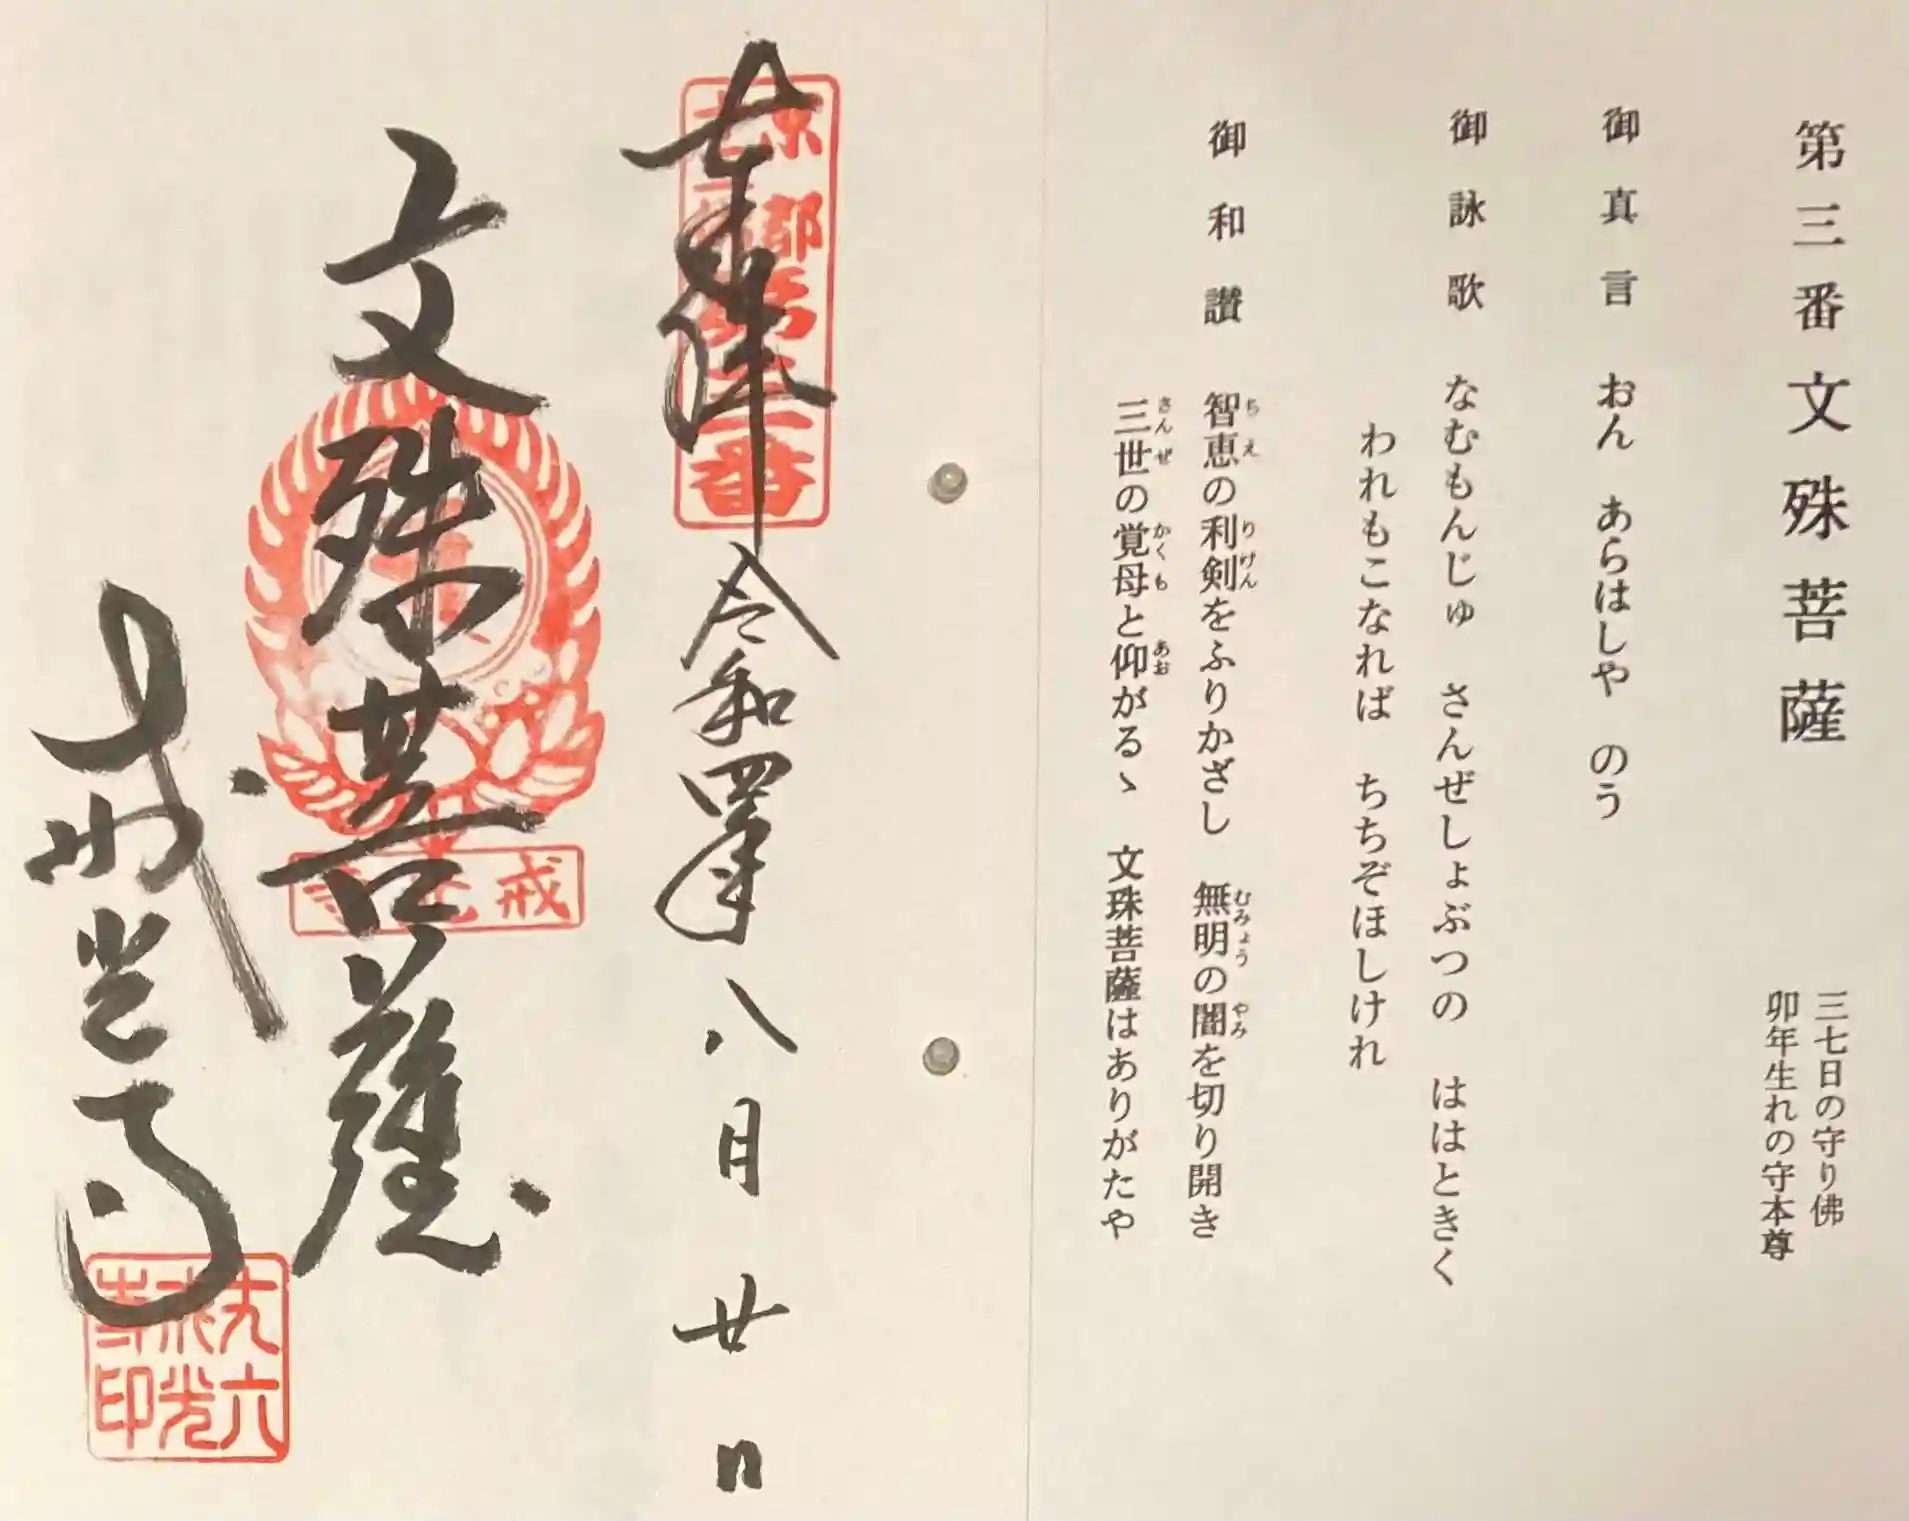 第三番 文殊菩薩
三七日の守り佛
卯年生れの守本尊
御真言 おん あらはしや のう
御詠歌 なむもんじゅ さんぜしょぶつの ははときく
われもこなれば ちちぞほしけれ
御和讃 智恵の利剣をふりかざし 無明の闇を切り開き
ちえ りけん むみょう やみ
三世の覚母と仰がるゝ 文珠菩薩はありがたや
さんぜ かくも あお
奉拝 令和四年八月廿日
京都
第三番
文殊菩薩
戒光寺
戒光寺
丈六戒光寺印